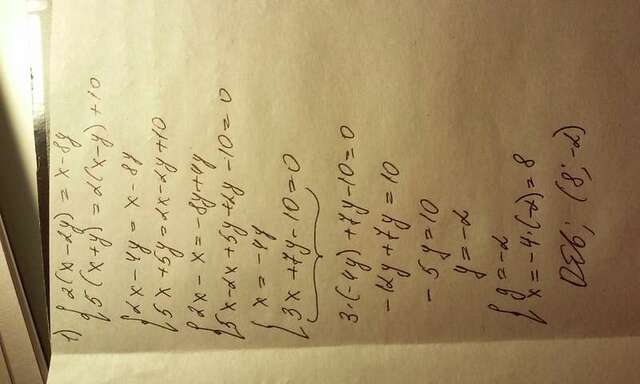 1) { 2(x-2y) = x-8y
5(x+y) = 2(x-y)+10
{ 2x-4y = x-8y
5x+5y = 2x-2y+10
{ 2x-x = -8y+4y
5x-2x+5y+2y-10=0
{ x = -4y
3x+7y-10=0
3·(-4y)+7y-10=0
-12y+7y=10
-5y=10
y=-2
{ y=-2
x=-4·(-2)=8
Отв; (8; -2)